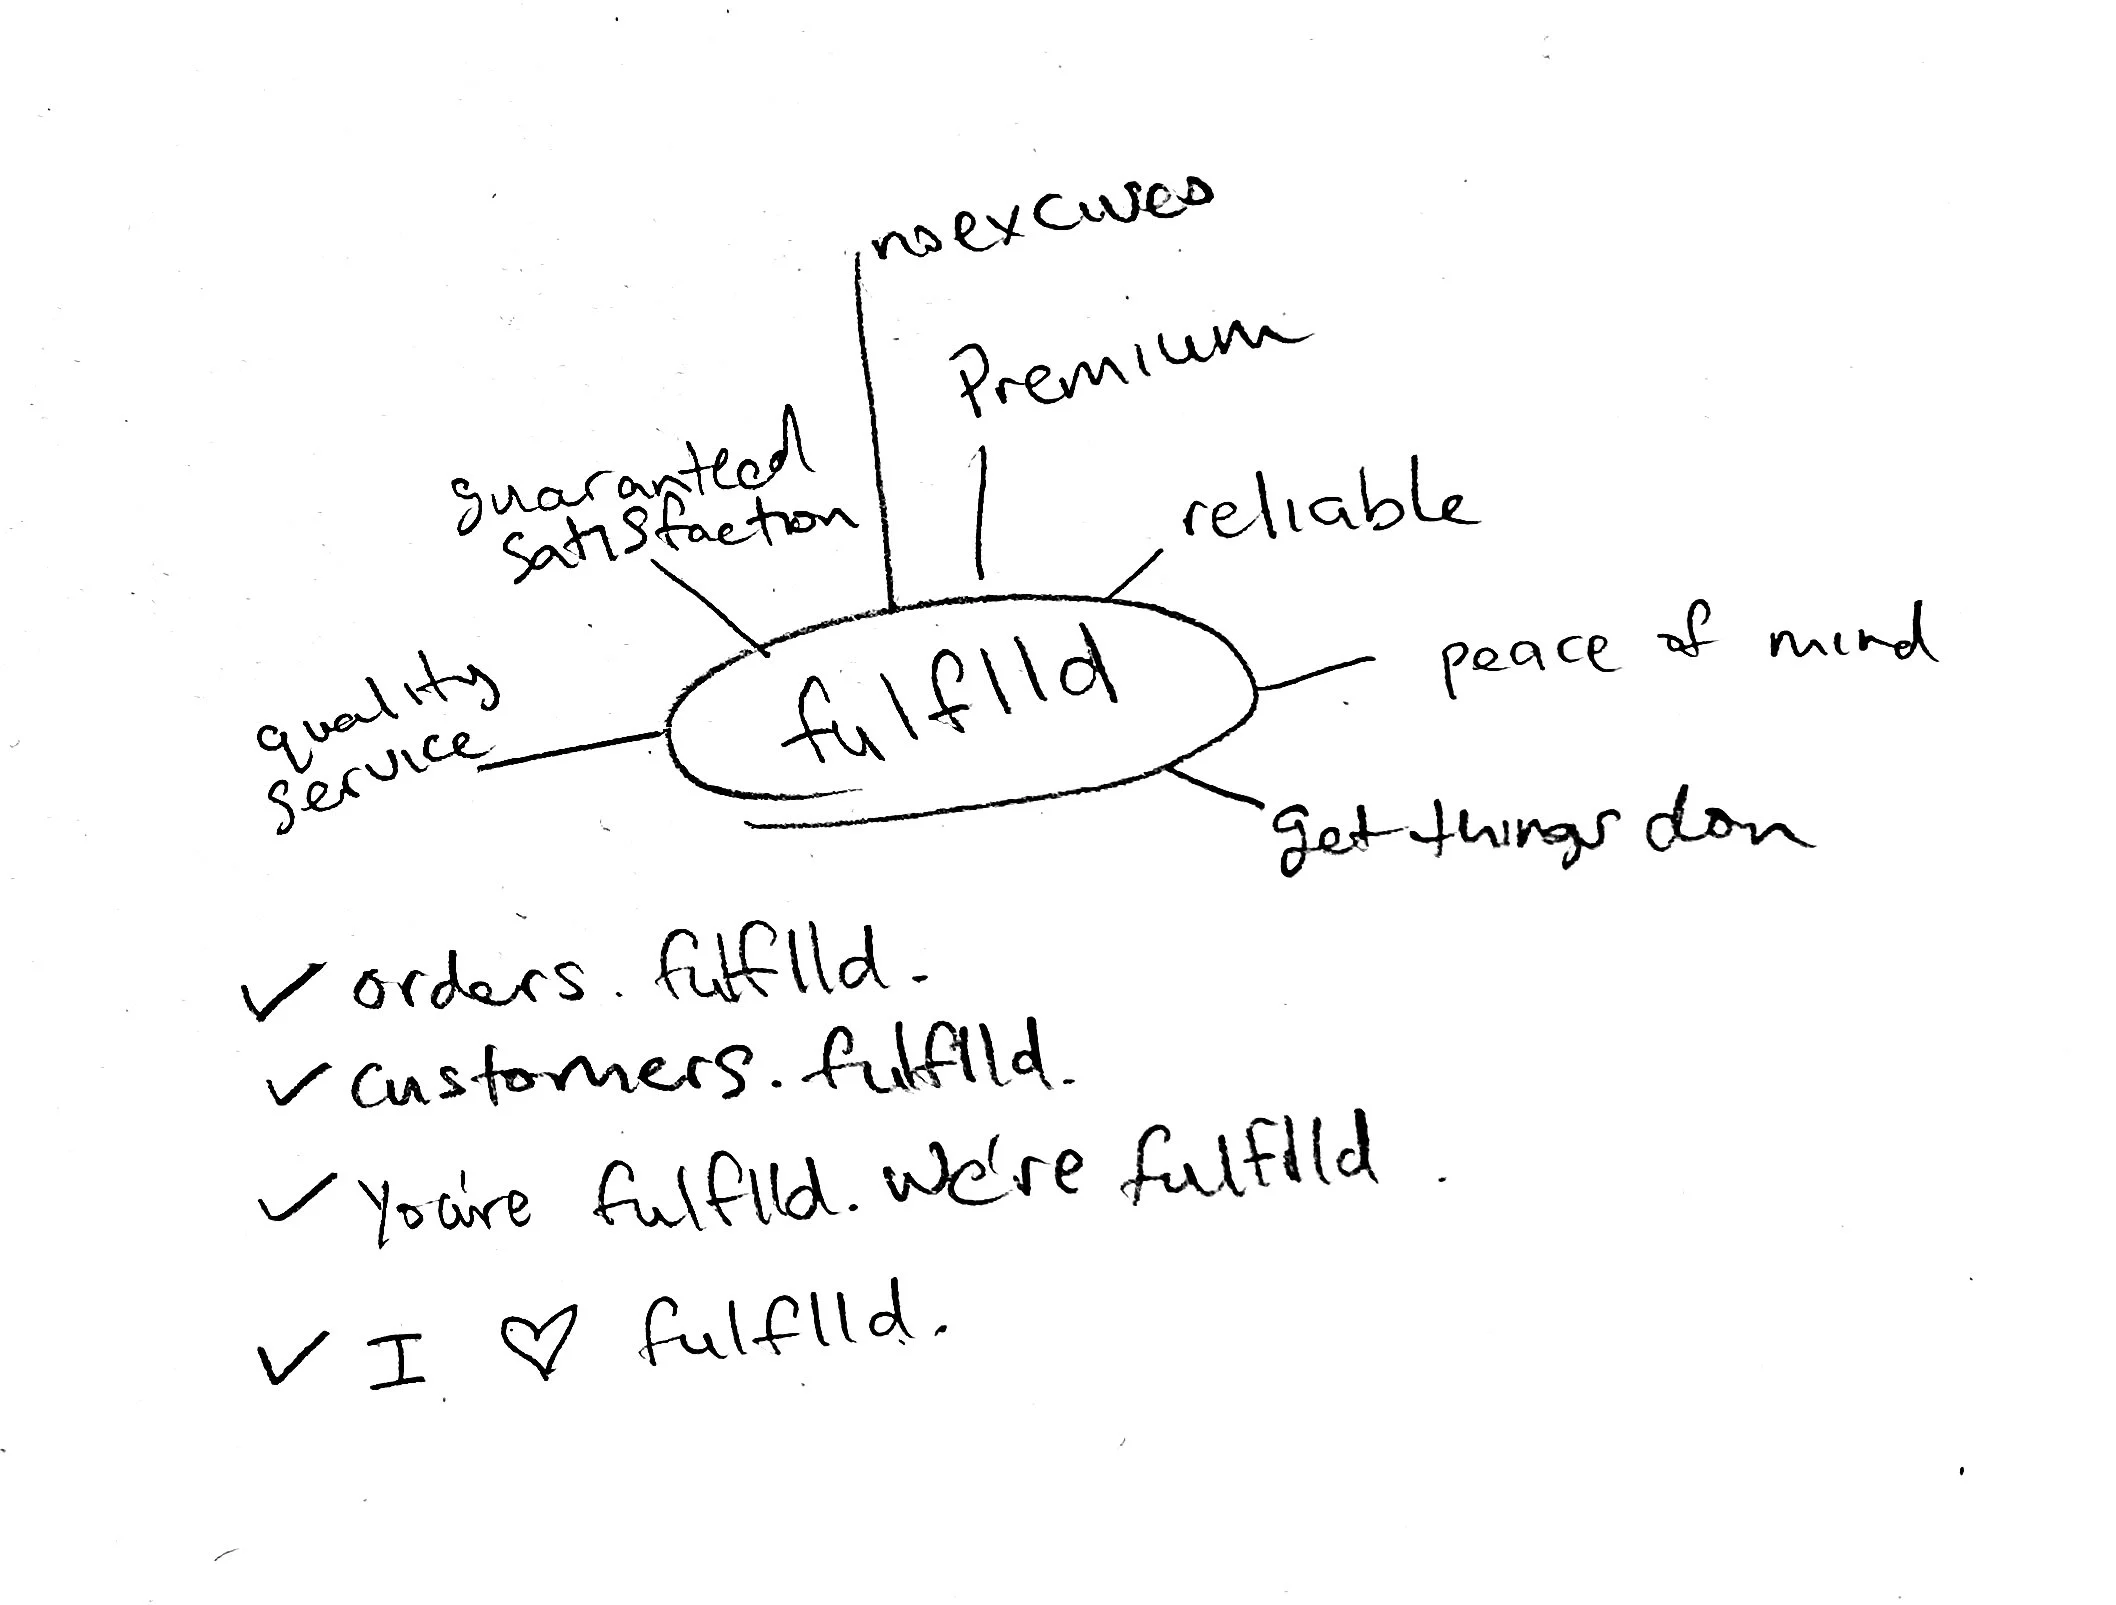 no excuses
Premium
guaranteed
satisfaction
reliable
quality
service
fulflld
peace of mind
get things don
✓ orders. fulflld.
✓ customers. fulflld.
✓ You're fulflld. We're fulflld.
✓ I ♡ fulflld.